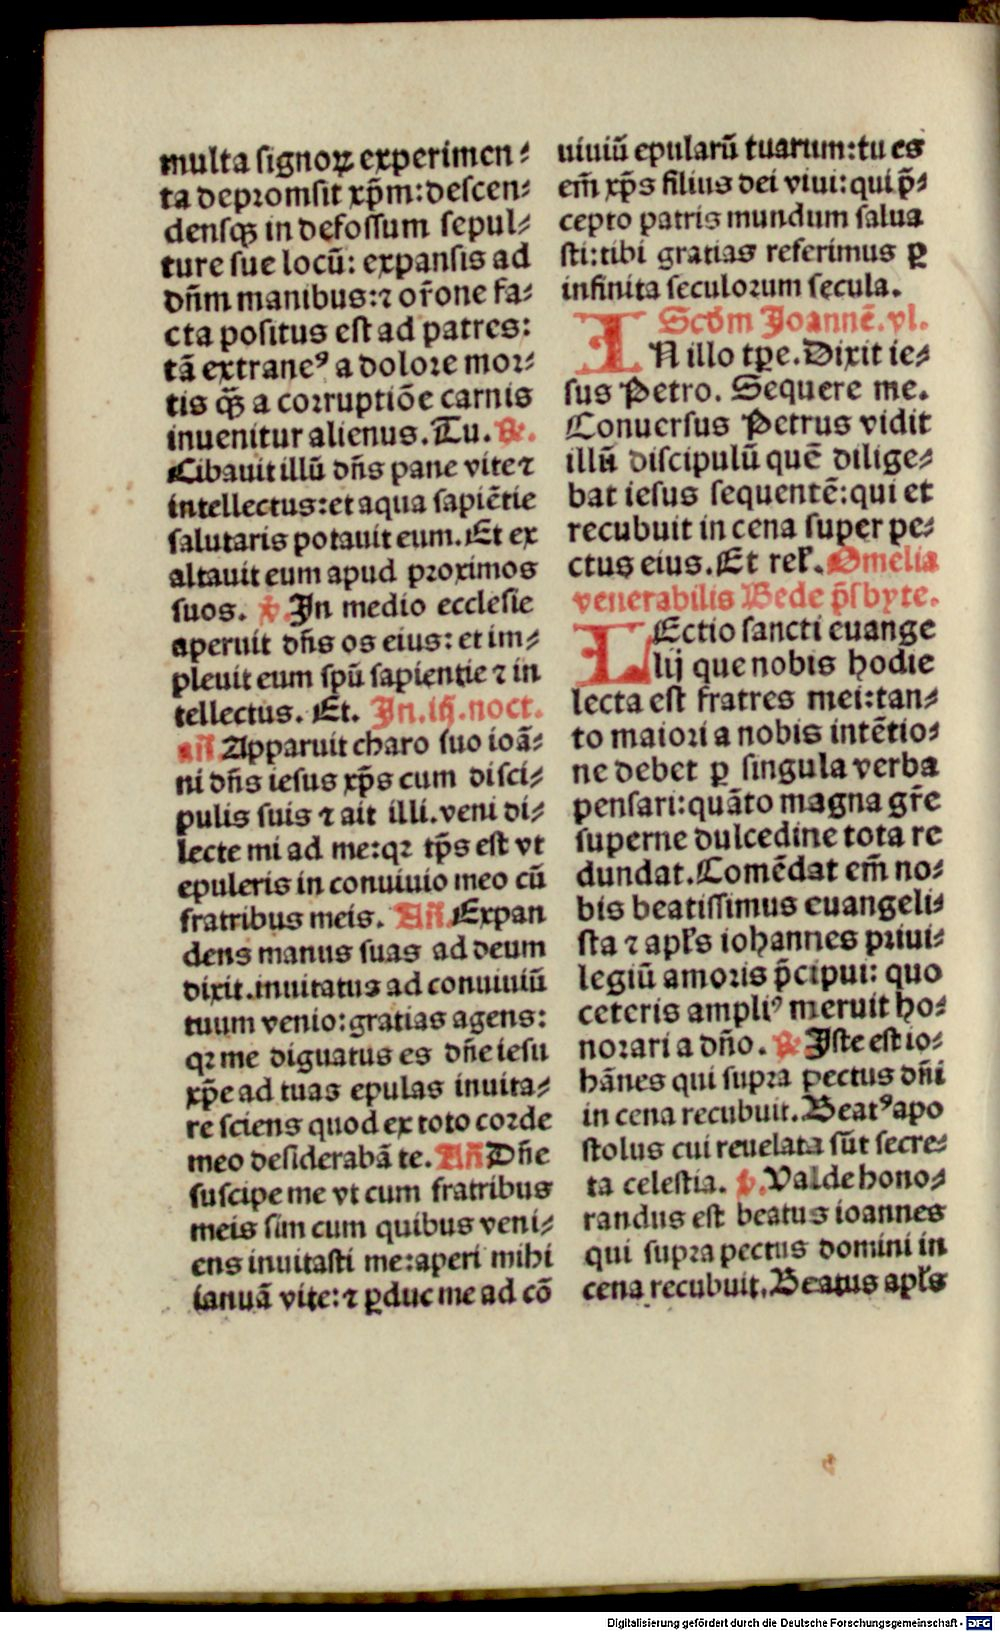 multa signoꝝ experimen⸗
ta depromsit xp̄m: descen⸗
densqꝫ in defossum sepul⸗
ture sue locū: expansis ad
dn̄m manibus: ⁊ or̄one fa⸗
cta positus est ad patres:
tā extraneꝰ a dolore mor⸗
tis qꝫ̄ a corruptiōe carnis
inuenitur alienus. Tu. ℟.
Cibauit illū dn̄s pane vite ⁊
intellectus: et aqua sapiētie
salutaris potauit eum. Et ex
altauit eum apud proximos
suos. ℣. In medio ecclesie
aperuit dn̄s os eius: et im⸗
pleuit eum spū sapientie ⁊ in
tellectus. Et. In. iij. noct.
an̄ Apparuit charo suo ioā⸗
ni dn̄s iesus xp̄s cum disci⸗
pulis suis ⁊ ait illi. veni di⸗
lecte mi ad me: qꝛ tp̄s est vt
epuleris in conuiuio meo cū
fratribus meis. An̄. Expan
dens manus suas ad deum
dixit. inuitatus ad conuiuiū
tuum venio: gratias agens:
qꝛ me diguatus es dn̄e iesu
xp̄e ad tuas epulas inuita⸗
re sciens quod ex toto corde
meo desiderabā te. An̄ Dn̄e
suscipe me vt cum fratribus
meis sim cum quibus veni⸗
ens inuitasti me: aperi mihi
ianuā vite: ⁊ ꝑduc me ad cō
uiuiū epularū tuarum: tu es
em̄ xp̄s filius dei viui: qui p̄⸗
cepto patris mundum salua
sti: tibi gratias referimus ꝑ
infinita seculorum secula.
Scd̄m Joannē. vl.
IN illo tꝑe. Dixit ie⸗
sus Petro. Sequere me.
Conuersus Petrus vidit
illū discipulū quē dilige⸗
bat iesus sequentē: qui et
recubuit in cena super pe⸗
ctus eius. Et rel̄. Omelia
venerabilis Bede p̄sbyte.
LEctio sancti euange
lij que nobis hodie
lecta est fratres mei: tan⸗
to maiori a nobis intētio⸗
ne debet ꝑ singula verba
pensari: quāto magna gr̄e
superne dulcedine tota re
dundat. Comēdat em̄ no⸗
bis beatissimus euangeli⸗
sta ⁊ apl̄s iohannes priui⸗
legiū amoris p̄cipui: quo
ceteris ampliꝰ meruit ho⸗
norari a dn̄o. ℟ Iste est io⸗
hānes qui supra pectus dn̄i
in cena recubuit. Beatꝰ apo
stolus cui reuelata sūt secre⸗
ta celestia. ℣. Valde hono⸗
randus est beatus ioannes
qui supra pectus domini in
cena recubuit. Beatus apl̄s
Digitalisierung gefördert durch die Deutsche Forschungsgemeinschaft - DFG